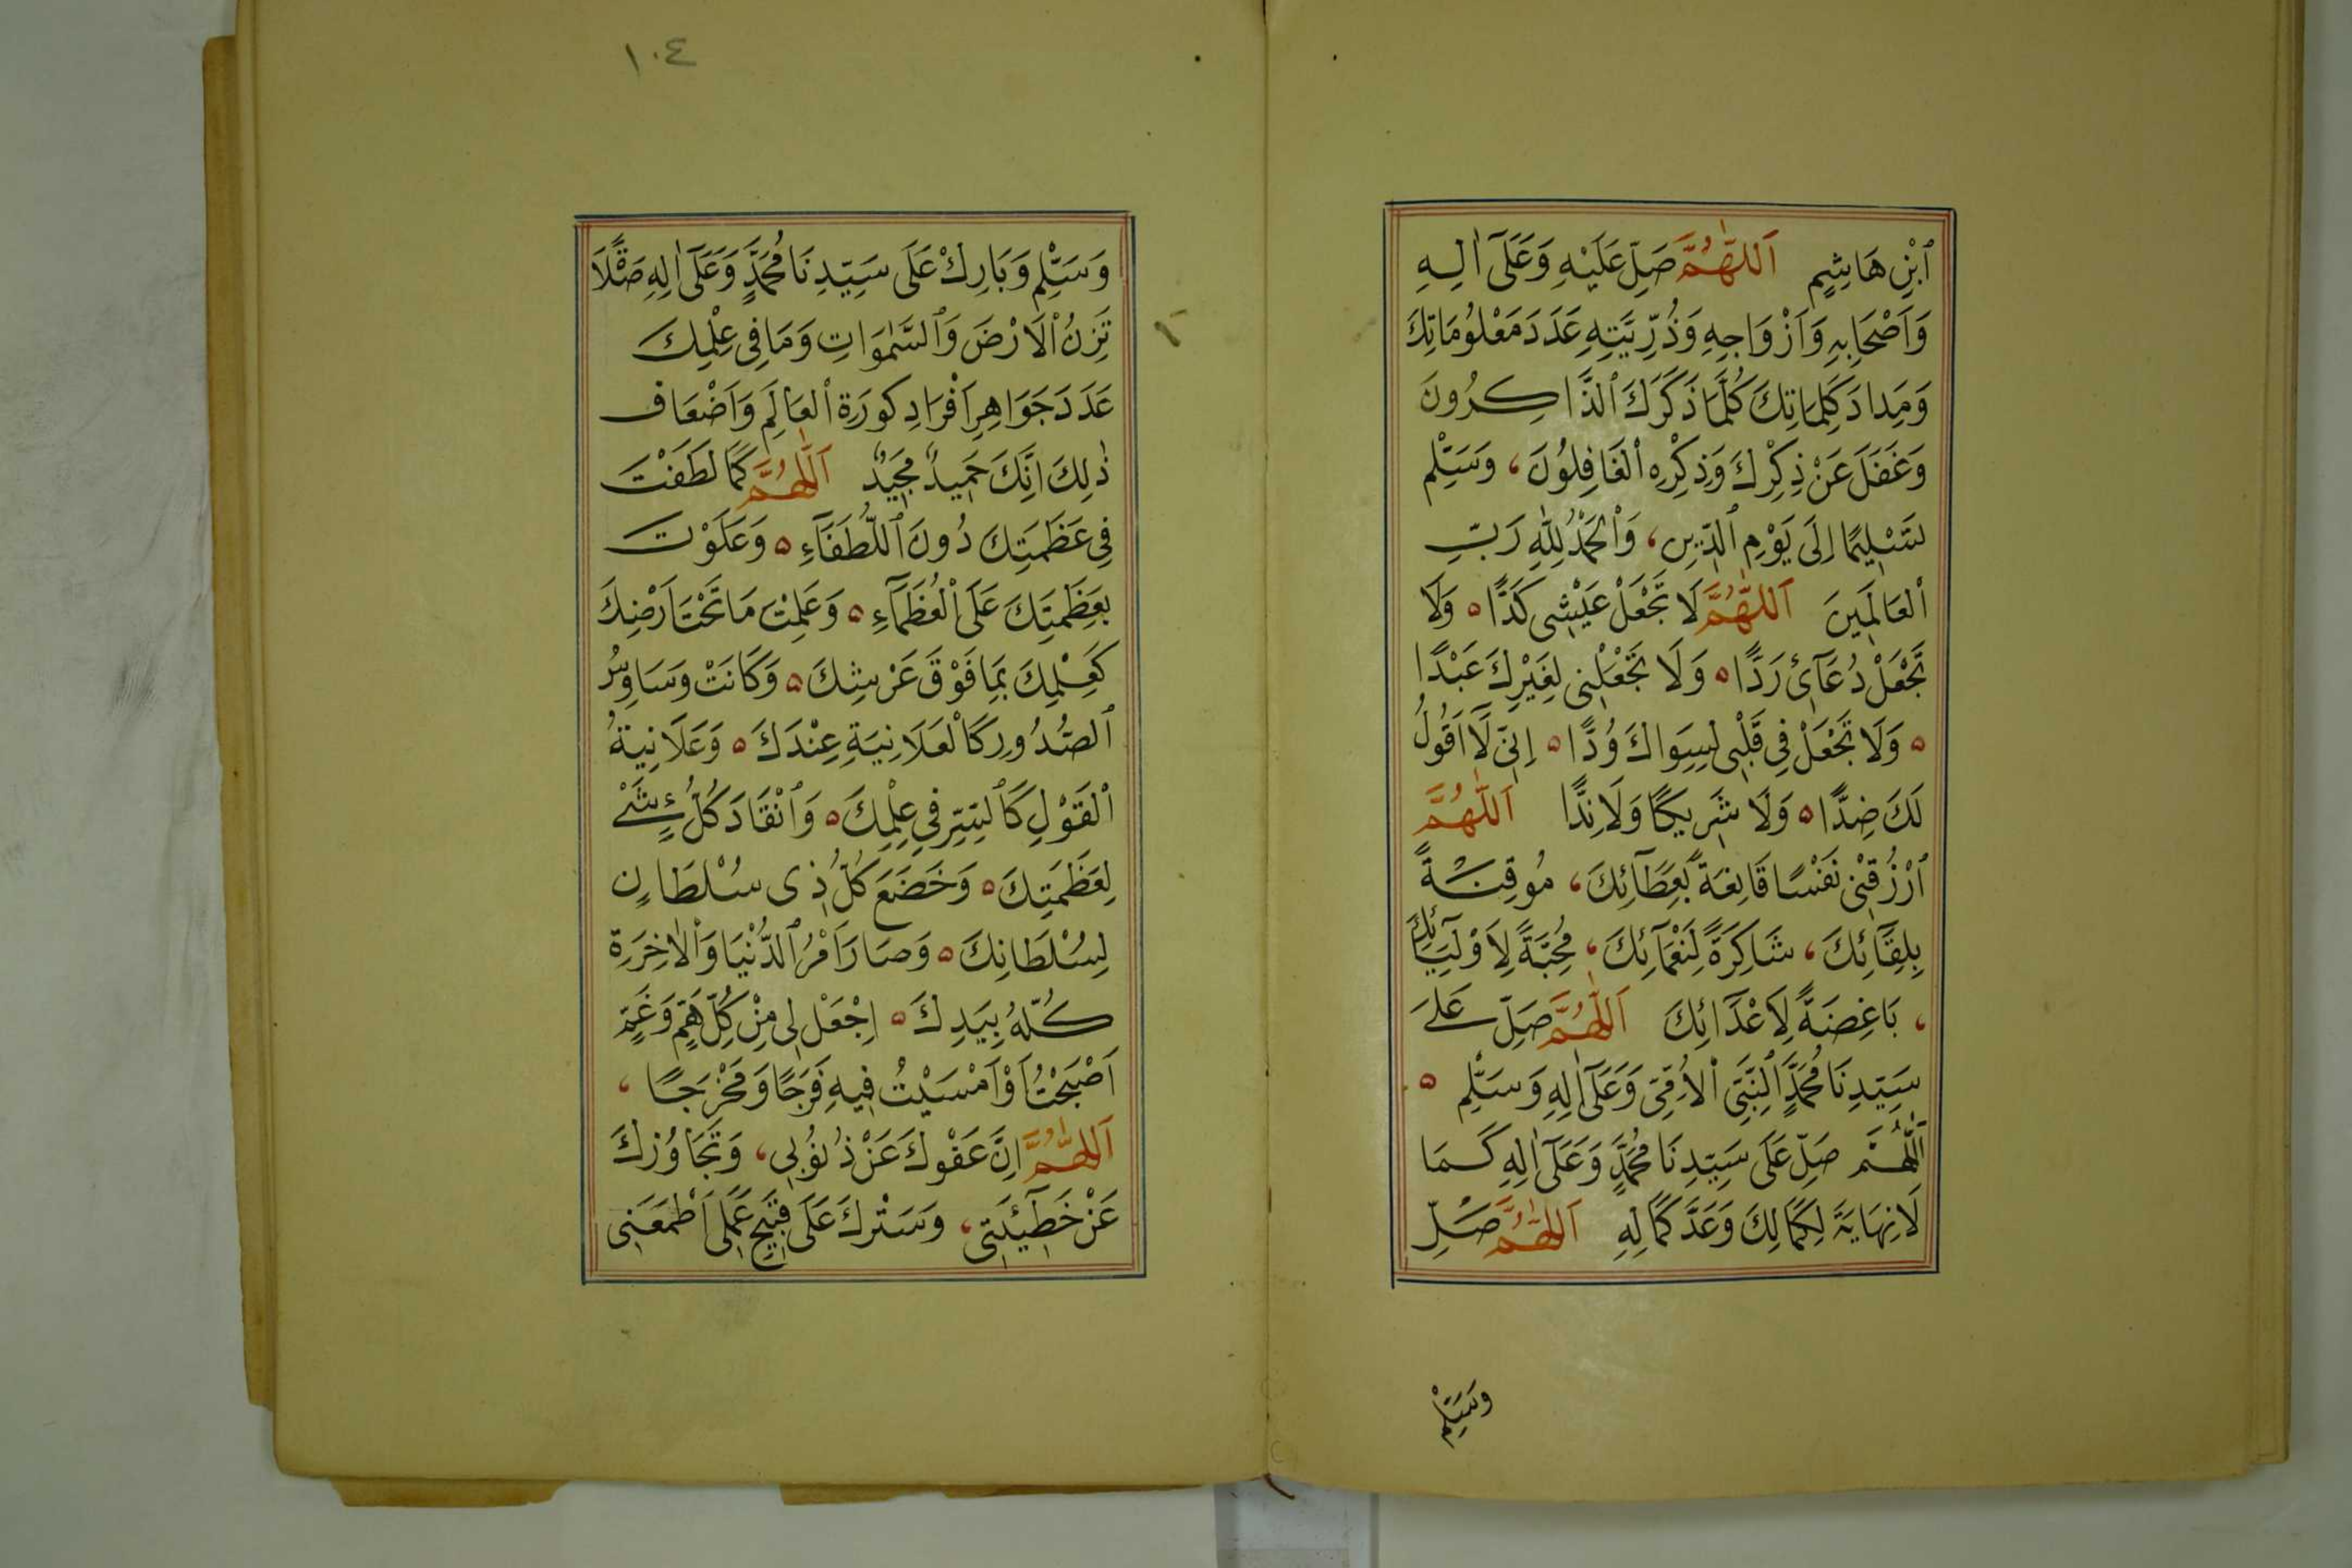 ٱبْنِ هَاشِمٍ اَللّٰهُمَّ صَلِّ عَلَيْهِ وَعَلَىٓ اٰلِهِ
وَاَصْحَابِهِ وَاَزْوَاجِهِ وَذُرِّيَّتِهِ عَدَدَ مَعْلُومَاتِكَ
وَمِدَادَ كَلِمَاتِكَ كُلَّمَا ذَكَرَكَ ٱلذَّاكِرُونَ
وَغَفَلَ عَنْ ذِكْرِكَ وَذِكْرِهِ ٱلْغَافِلُونَ، وَسَلِّمْ
تَسْلِيمًا اِلَى يَوْمِ ٱلدِّينِ، وَٱلْحَمْدُ لِلّٰهِ رَبِّ
ٱلْعَالَمِينَ اَللّٰهُمَّ لَا تَجْعَلْ عَيْشِى كَدًّا ٥ وَلَا
تَجْعَلْ دُعَآئِ رَدًّا ٥ وَلَا تَجْعَلْنِى لِغَيْرِكَ عَبْدًا
٥ وَلَا تَجْعَلْ فِى قَلْبِى لِسِوَاكَ وُدًّا ٥ اِنِّى لَآ اَقُولُ
لَكَ ضِدًّا ٥ وَلَا شَرِيكًا وَلَا نِدًّا اَللّٰهُمَّ
ٱرْزُقْنِى نَفْسًا قَانِعَةً بِعَطَآئِكَ، مُوقِنَةً
بِلِقَآئِكَ، شَاكِرَةً لِنَعْمَآئِكَ، مُحِبَّةً لِاَوْلِيَآئِكَ
، بَاغِضَةً لِاَعْدَآئِكَ اَللّٰهُمَّ صَلِّ عَلَى
سَيِّدِنَا مُحَمَّدٍ ٱلنَّبِىِّ ٱلْاُمِّىِّ وَعَلَىٓ اٰلِهِ وَسَلِّمْ ٥
اَللّٰهُمَّ صَلِّ عَلَى سَيِّدِنَا مُحَمَّدٍ وَعَلَىٓ اٰلِهِ كَمَا
لَا نِهَايَةَ لِكَمَالِكَ وَعَدَّ كَمَالِهِ اَللّٰهُمَّ صَلِّ
وَسَلِّمْ
١٠٤
وَسَلِّمْ وَبَارِكْ عَلَى سَيِّدِنَا مُحَمَّدٍ وَعَلَىٓ اٰلِهِ صَلَاةً
تَزِنُ ٱلْاَرْضَ وَٱلسَّمٰوَاتِ وَمَا فِى عِلْمِكَ
عَدَدَ جَوَاهِرِ اَفْرَادِ كورَةِ ٱلْعَالَمِ وَاَضْعَافَ
ذٰلِكَ اِنَّكَ حَمِيدٌ مَجِيدٌ اَللّٰهُمَّ كَمَا لَطَفْتَ
فِى عَظَمَتِكَ دُونَ ٱللُّطَفَآءِ ٥ وَعَلَوْتَ
بِعَظَمَتِكَ عَلَى ٱلْعُظَمَآءِ ٥ وَعَلِمْتَ مَا تَحْتَ اَرْضِكَ
كَعِلْمِكَ بِمَا فَوْقَ عَرْشِكَ ٥ وَكَانَتْ وَسَاوِسُ
ٱلصُّدُورِ كَٱلْعَلَانِيَةِ عِنْدَكَ ٥ وَعَلَانِيَةُ
ٱلْقَوْلِ كَٱلسِّرِّ فِى عِلْمِكَ ٥ وَٱنْقَادَ كُلُّ شَىْءٍ
لِعَظَمَتِكَ ٥ وَخَضَعَ كُلُّ ذِى سُلْطَانٍ
لِسُلْطَانِكَ ٥ وَصَارَ اَمْرُ ٱلدُّنْيَا وَٱلْاٰخِرَةِ
كُلُّهُ بِيَدِكَ ٥ اِجْعَلْ لِى مِنْ كُلِّ هَمٍّ وَغَمٍّ
اَصْبَحْتُ اَوْ اَمْسَيْتُ فِيهِ فَرَجًا وَمَخْرَجًا ،
اَللّٰهُمَّ اِنَّ عَفْوَكَ عَنْ ذُنُوبِى، وَتَجَاوُزَكَ
عَنْ خَطِيٓئَتِى، وَسَتْرَكَ عَلَى قَبِيحِ عَمَلِى اَطْمَعَنِى